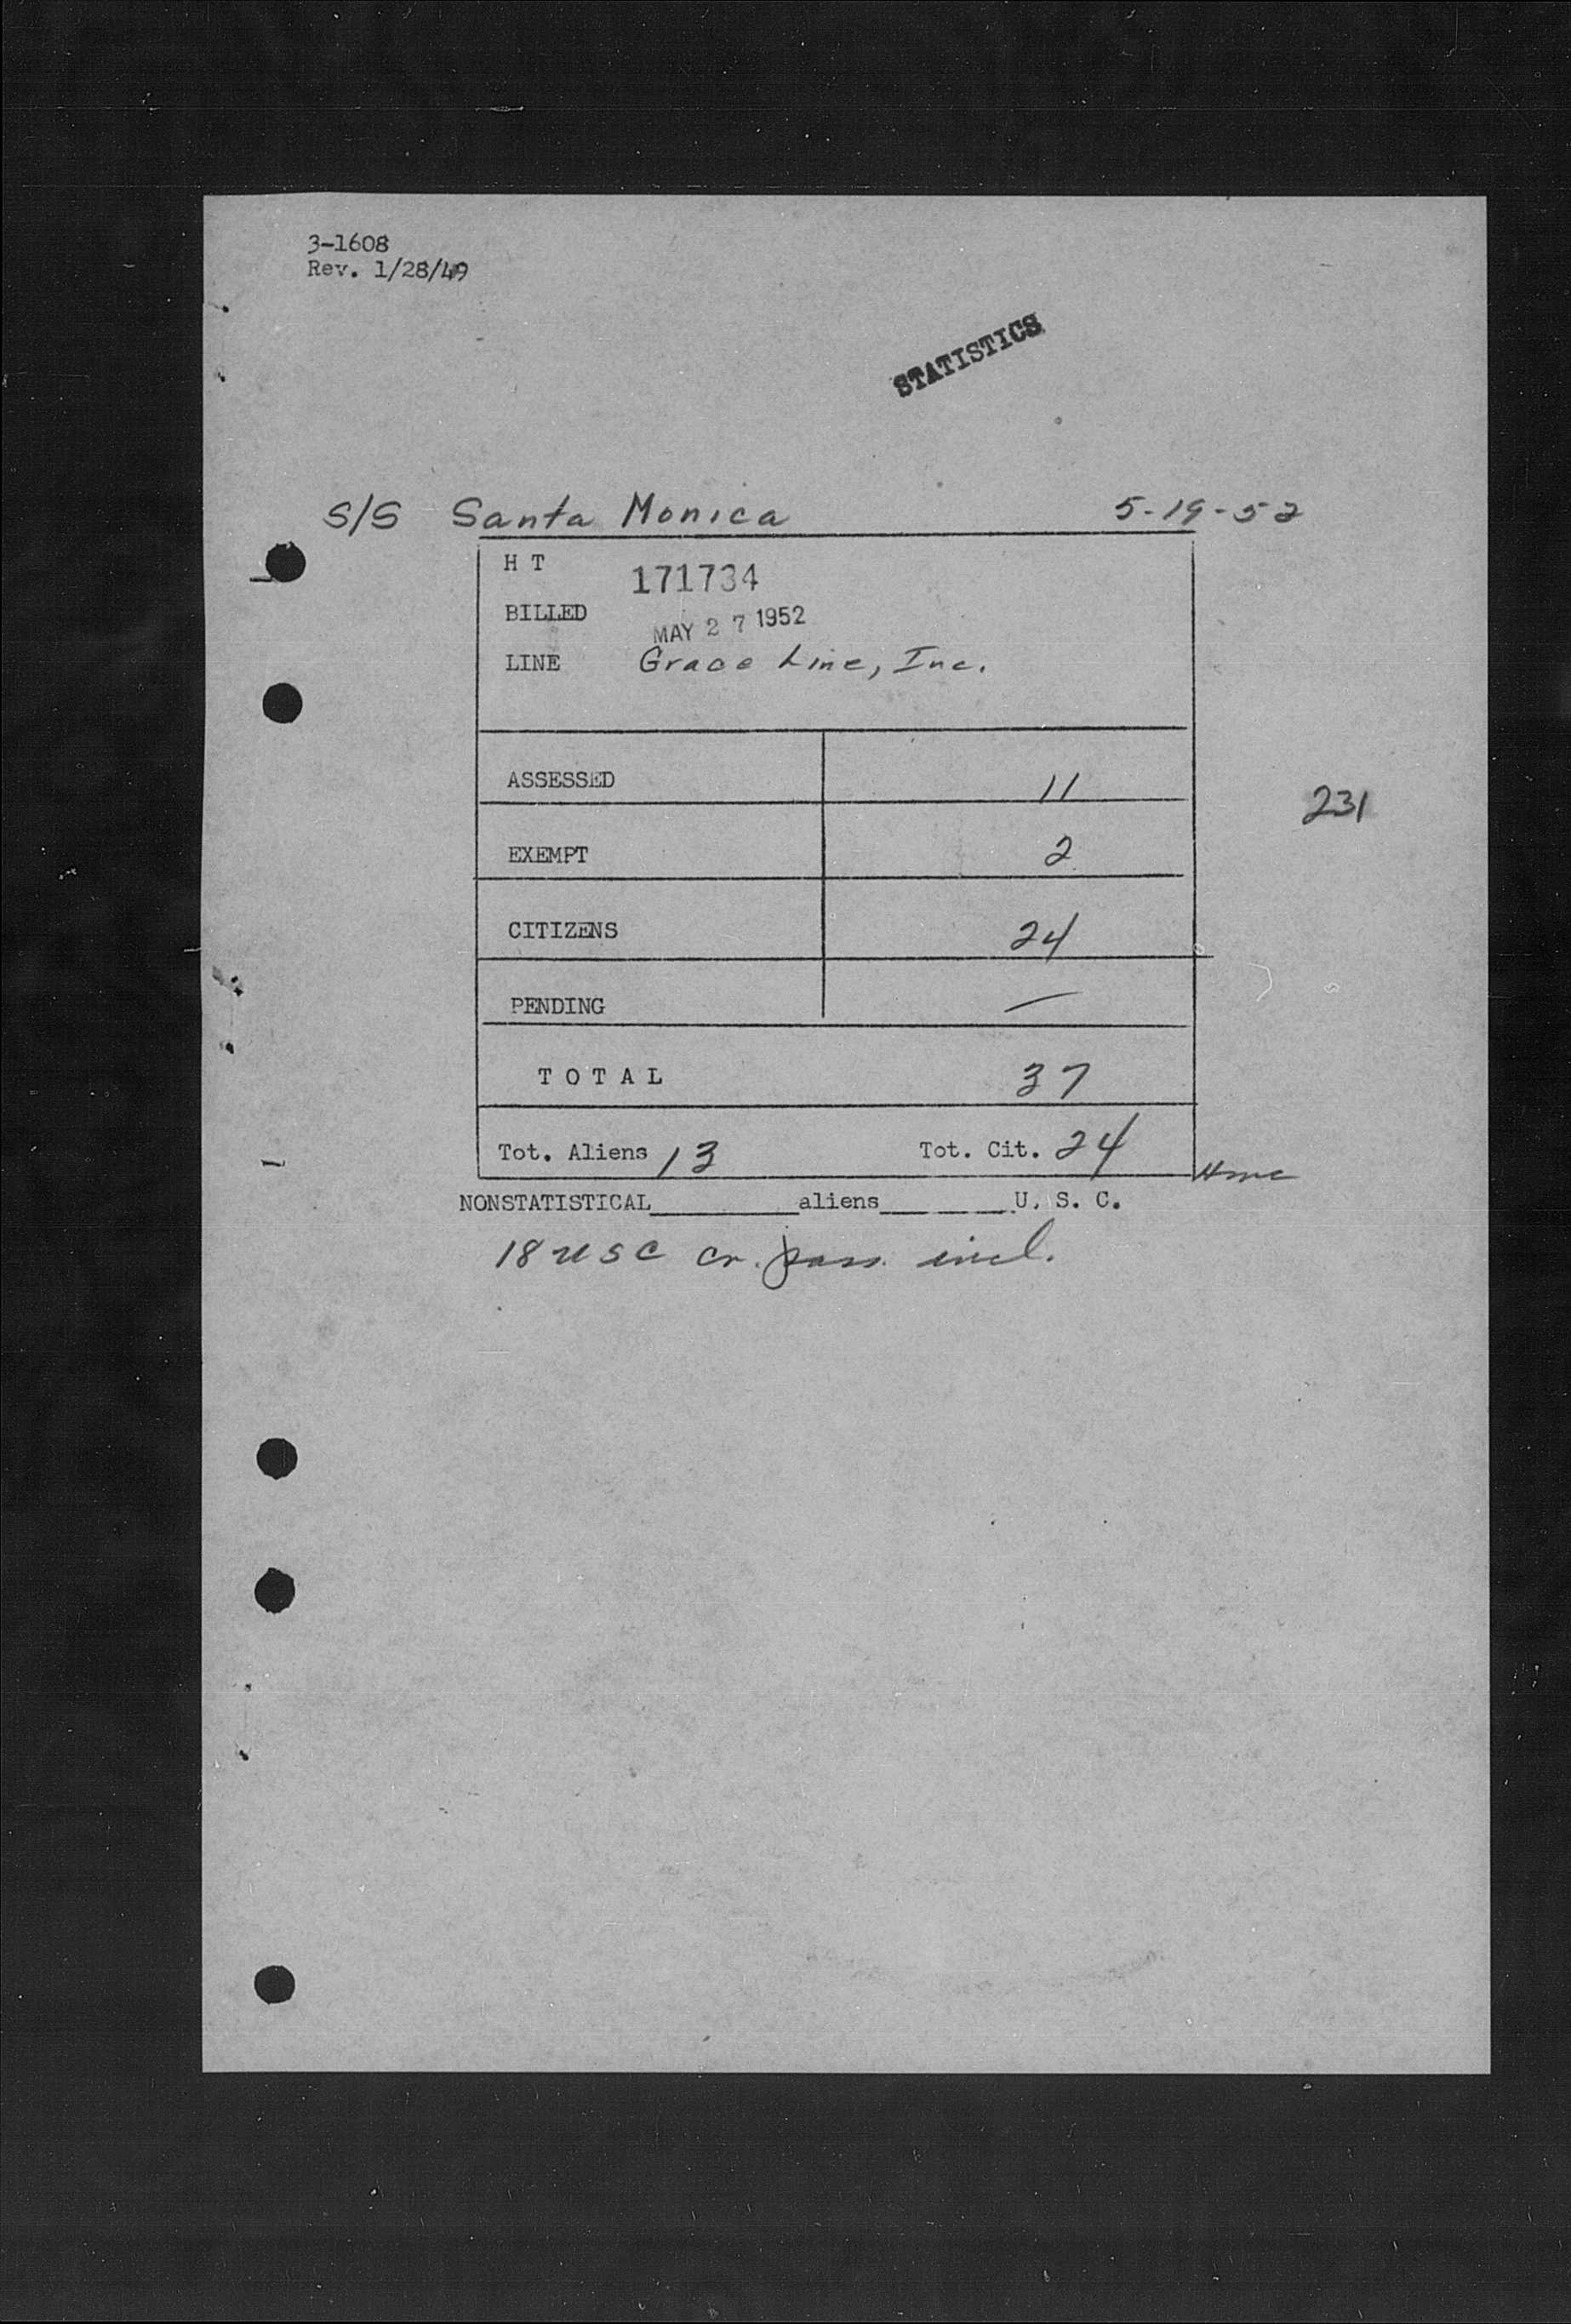 3-1608
Rev. 1/28/49
STATISTICS
S/S Santa Monica 5-19-52
H T 171734
BILLED MAY 27 1952
LINE Grace Line, Inc.
ASSESSED 11
231
EXEMPT 2
CITIZENS 24
PENDING —
TOTAL 37
Tot. Aliens 13 Tot. Cit. 24
NONSTATISTICAL__________aliens__________U. S. C.
18 USC cr. pass. incl.